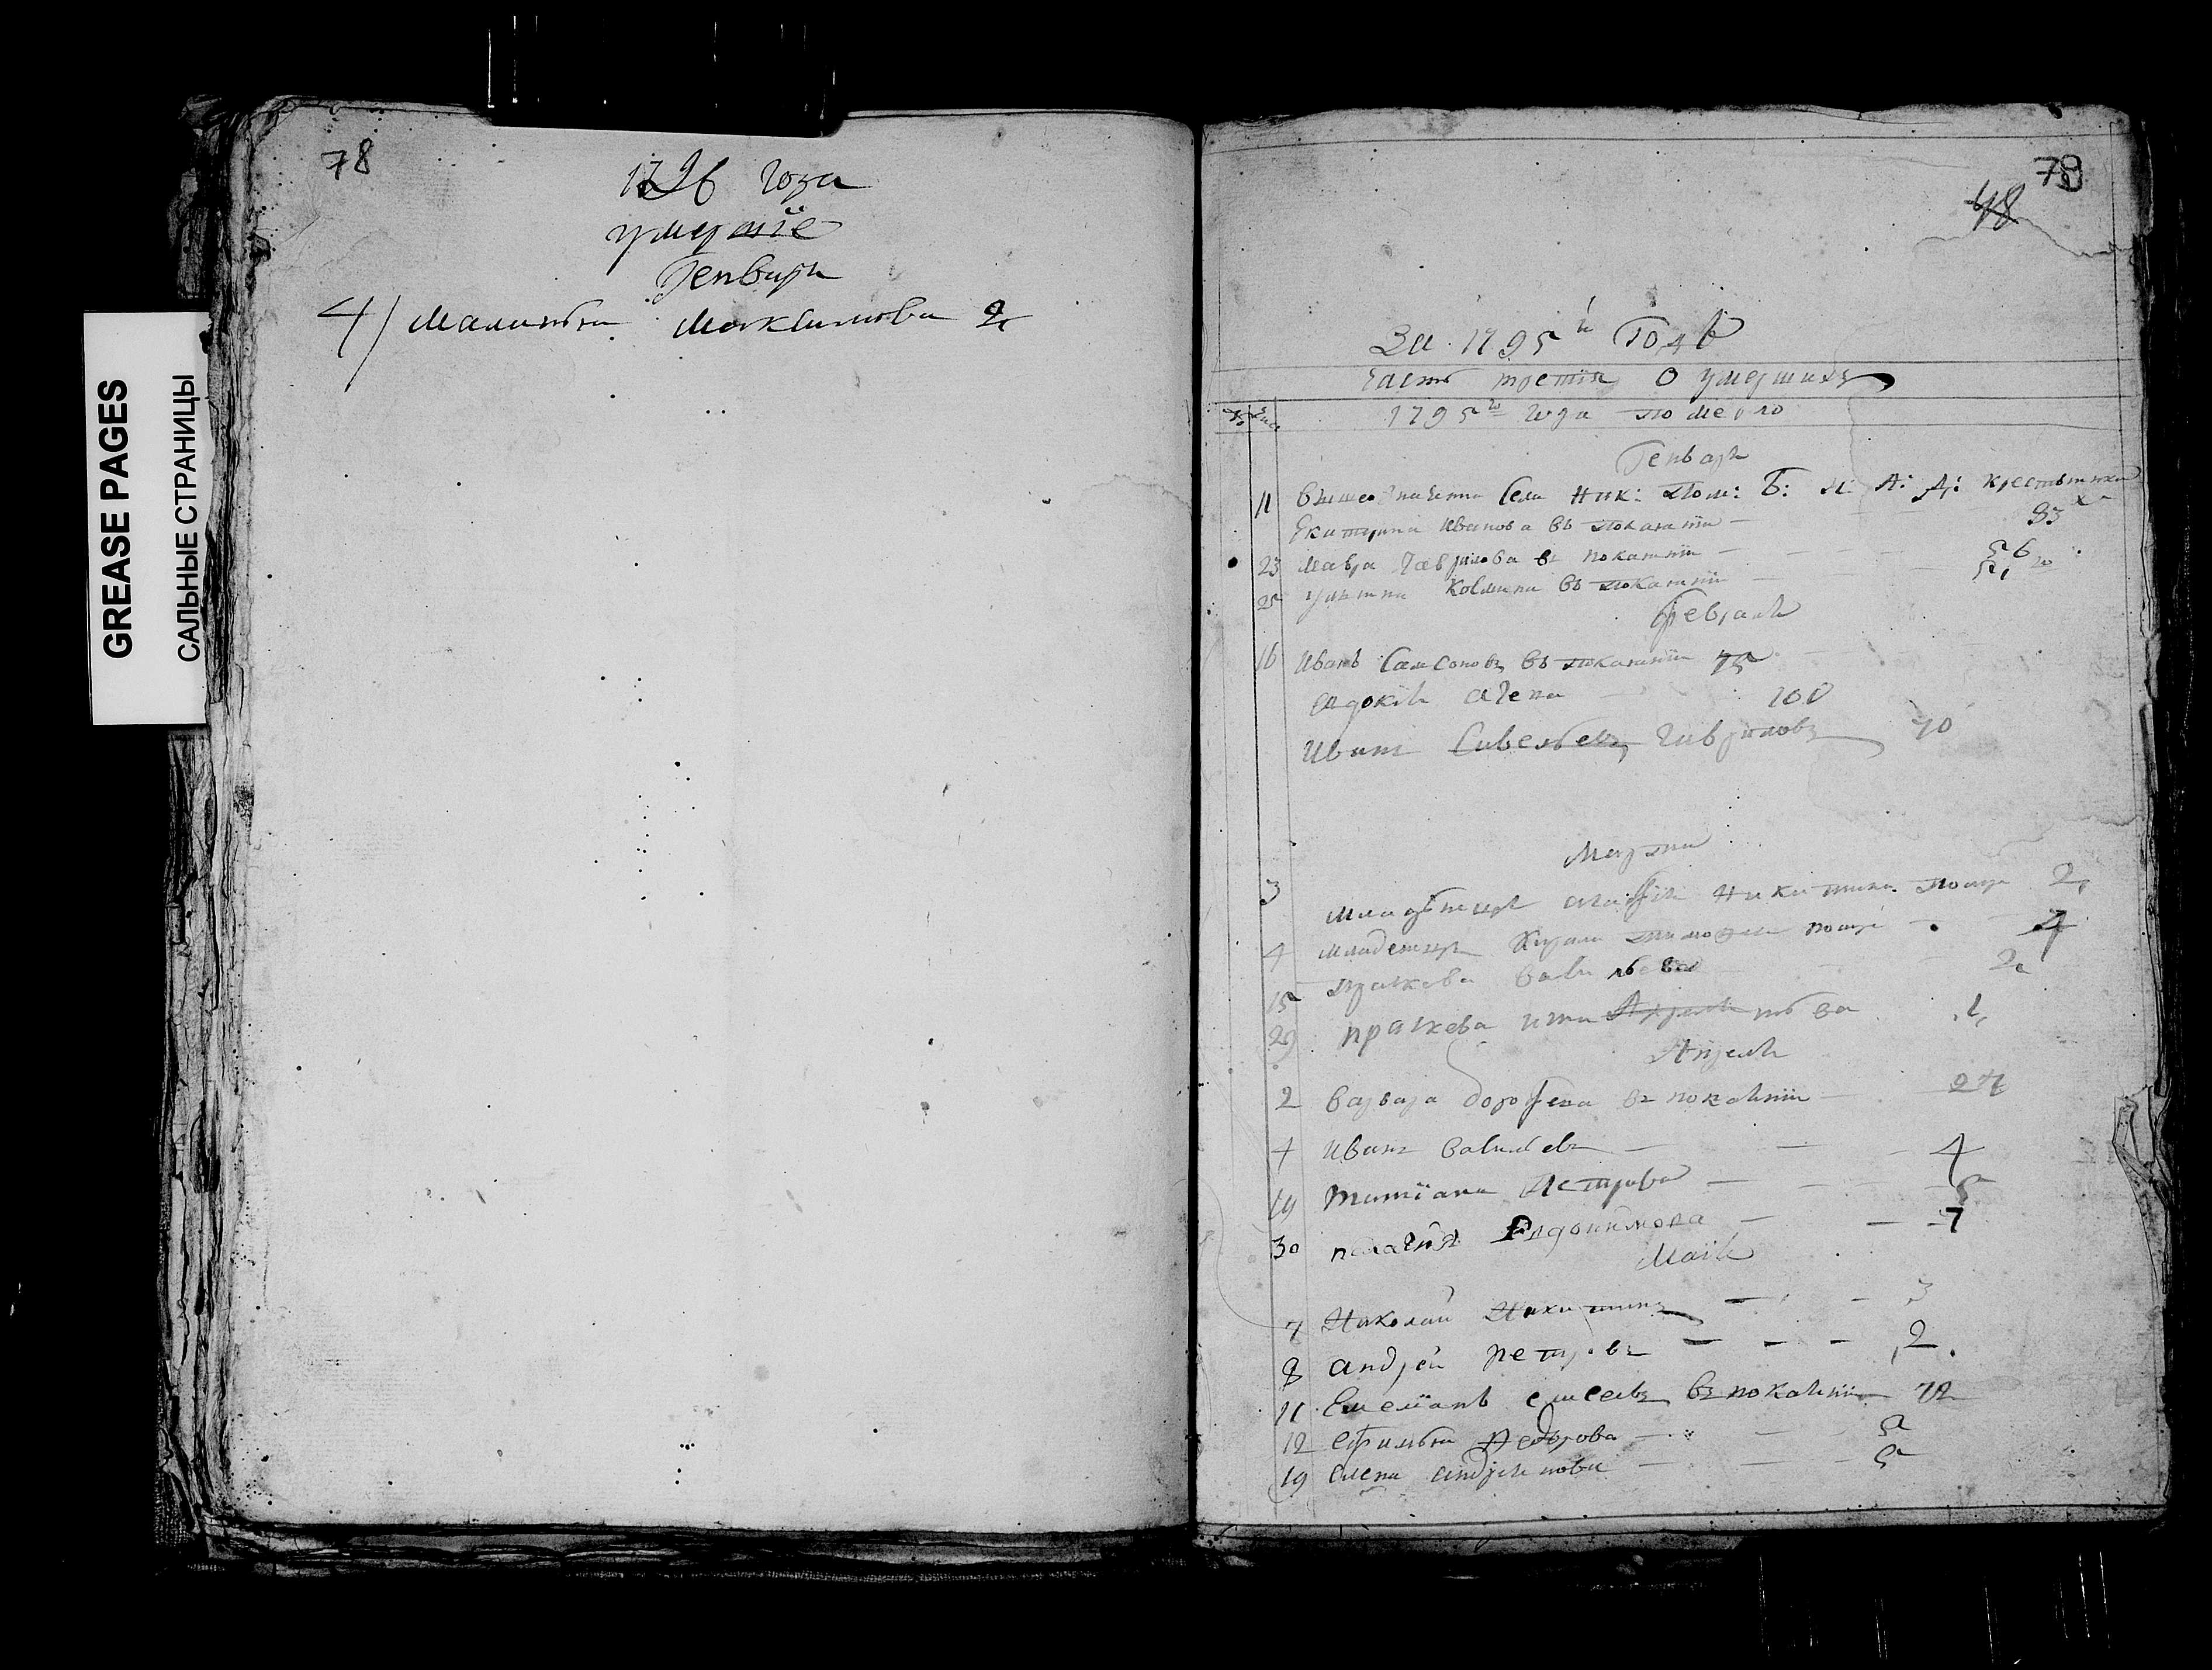 GREASE PAGES
САЛЬНЫЕ СТРАНИЦЫ
78
1796 года
умершїе
Генваря
4) Маланья Максимова 2
79
78
За 1795й Годъ
Часть третїя О умершихъ
№ Числ
1795го года померло
Генваря
11 Вышеозначенна Села Ник: Пом: Б: Н: А: Д: крестьянка
Екатерина Иванова въ покаянїи — 83х
23 Мавра Гаврилова въ покаянїи — 56
25 Устина Космина въ покаянїи —
Февраля
16 Иванъ Самсоновъ въ покаянїи 75
100
Иванъ Савельевъ Гавриловъ 70
Марта
3 младенецъ Никитина 2
4 младенецъ 4
15 Праскева Савельева 2
29 праскева 1
Апреля
2 варвара дорофеева въ покаянїи — 24
4 Иванъ Савельевъ — 4
19 Татїана Петрова — 5
30 пелагия Евдокимова — 7
Маїя
7 Николай Никитинъ — 3
8 андрей петровъ — 2
11 Емелїанъ въ покаянїи 72
12 Ефимья Федорова — 5
19 Елена андреянова — 5